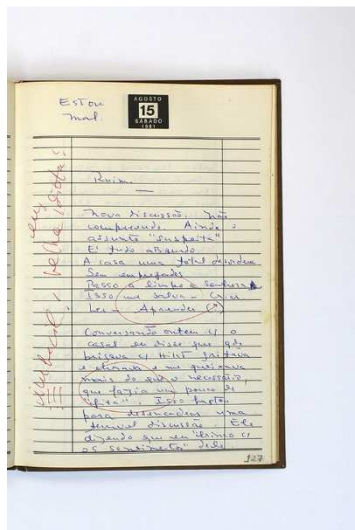 Estou
mal.
AGOSTO
15
SÁBADO
1981
Ruim.
Nova discussão. Não
compreendo. Ainda o
assunto "suspeita"
É tudo absurdo
A casa uma total desordem
Sem empregados
Passo a limpo a
Isso me salva - Criar
Ler - Aprender (?)
Conversando ontem c/ o
casal eu disse que qdo
brigava c/ Hilst gritava
e chorava e me queixava
mais do que o necessário,
que fazia um pouco de
"fita". Isso bastou
para desencadear uma
terrível discussão. Ele
dizendo que eu brinco c/
os sentimentos dele
imbecil! velha idiota!
127